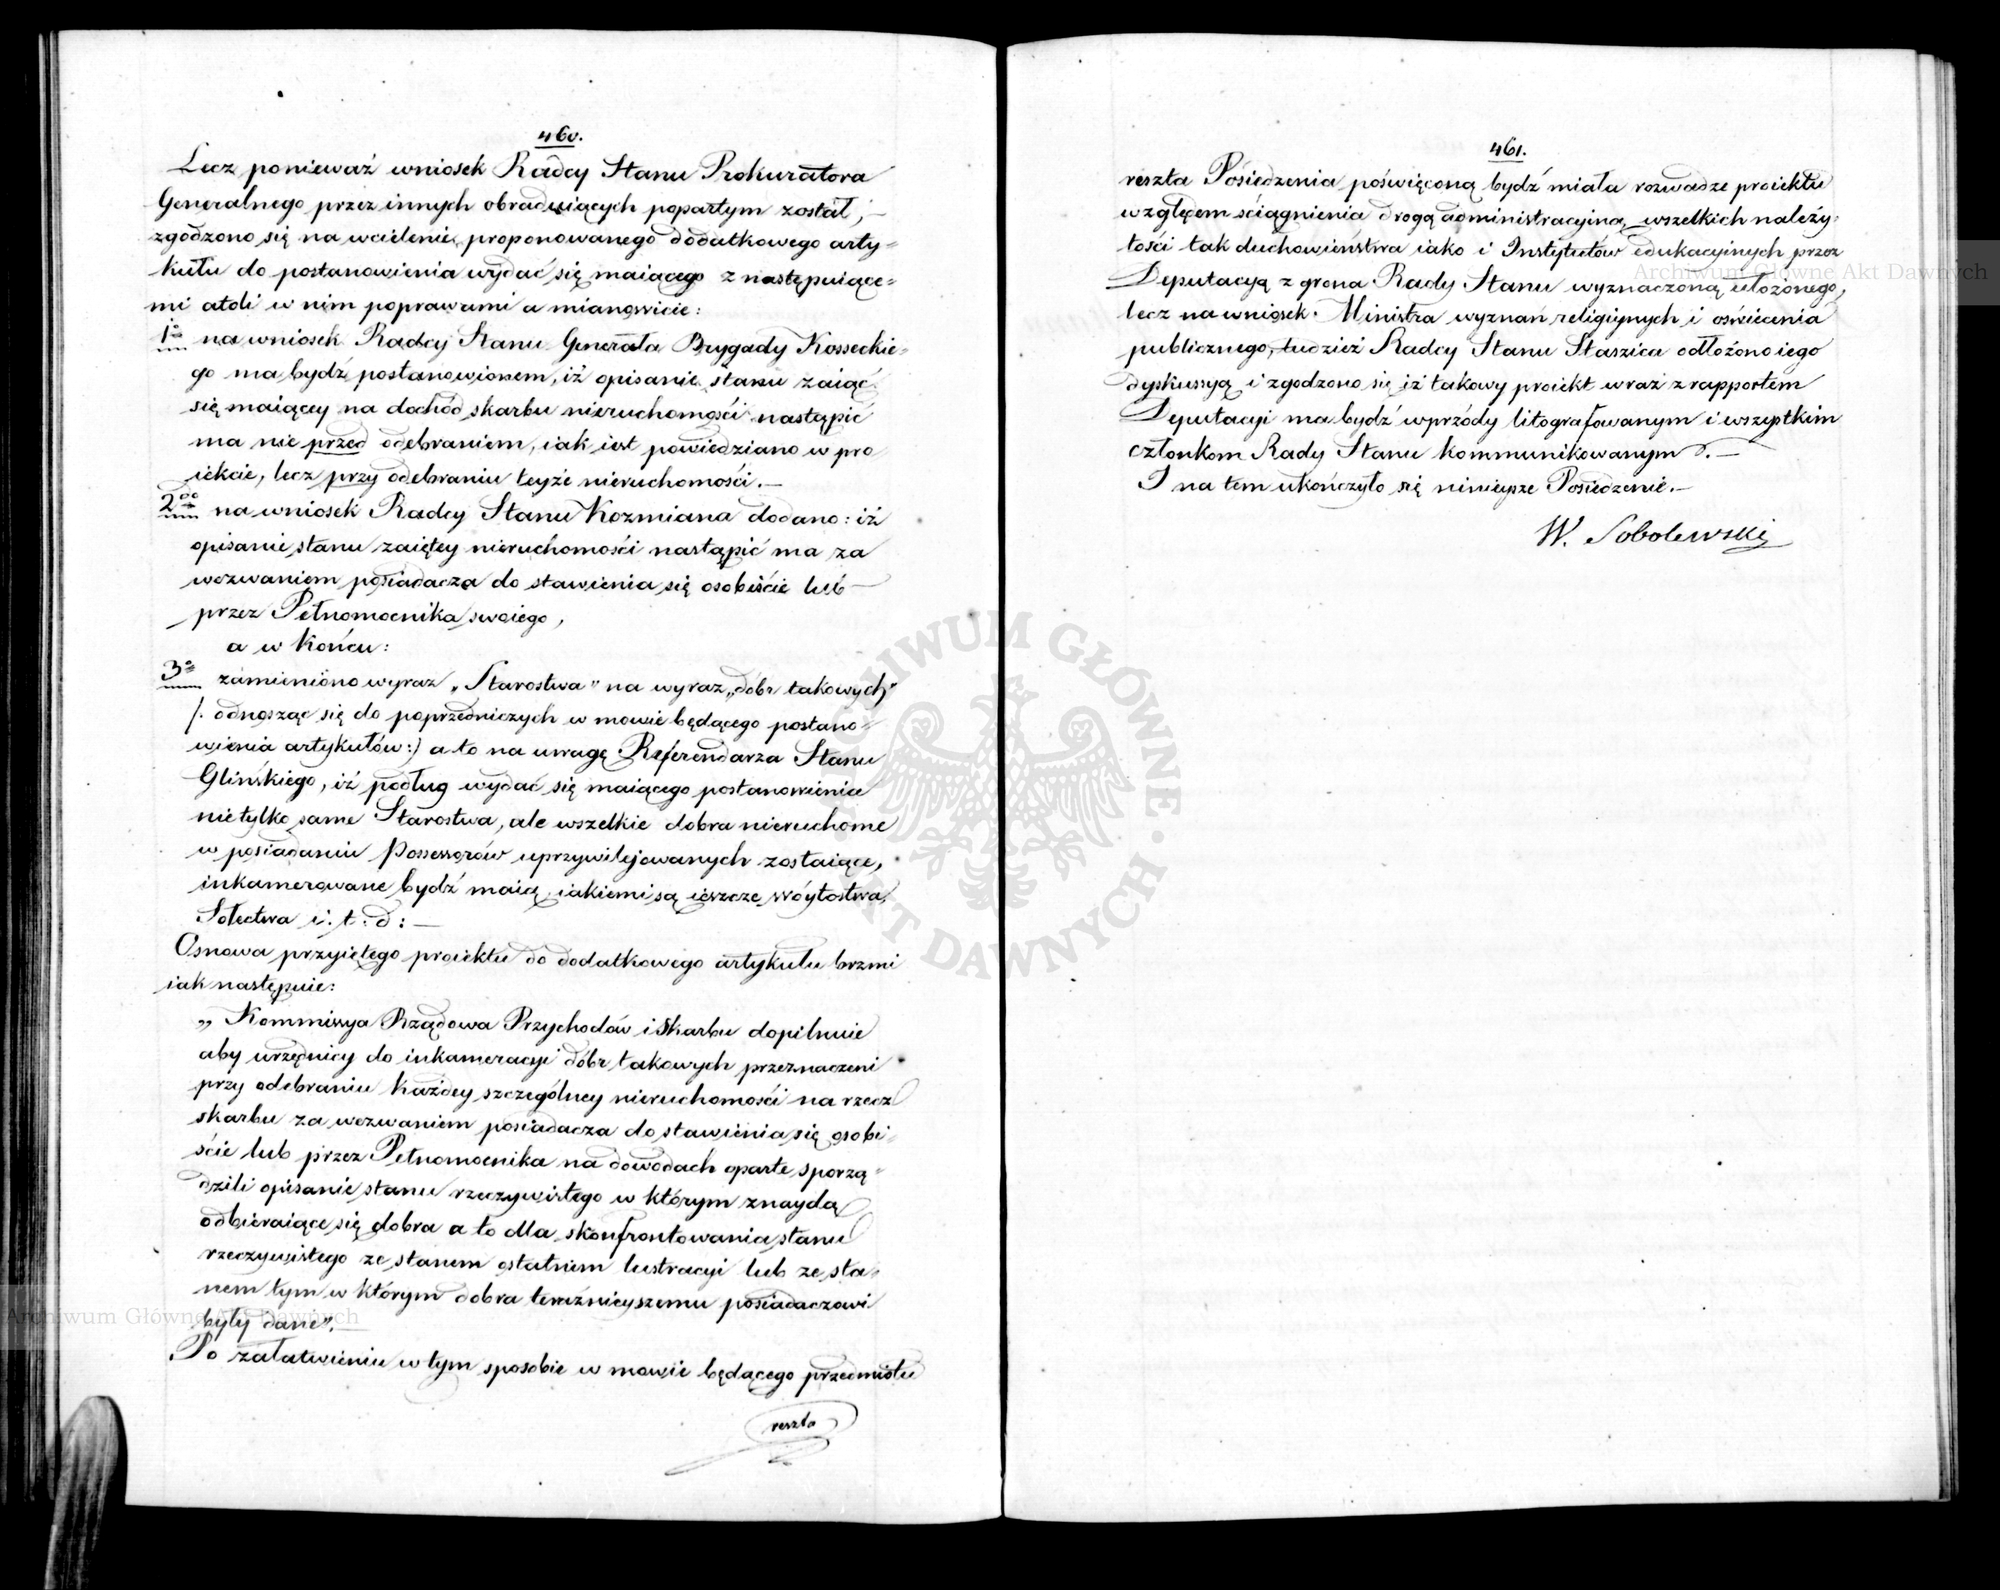 460.
Lecz ponieważ wniosek Radcy Stanu Prokuratora
Generalnego przez innych obraduiących popartym został,—
zgodzono się na wcielenie proponowanego dodatkowego arty-
kułu do postanowienia wydać się maiącego z następuiące-
mi atoli w nim poprawami a mianowicie:
1o na wniosek Radcy Stanu Generała Brygady Kosseckie-
go ma bydź postanowionem, iż opisanie stanu zaiąć
się maiącey na dochód skarbu nieruchomości nastąpić
ma nie przed odebraniem, iak iest powiedziano w pro
iekcie, lecz przy odebraniu teyże nieruchomości.—
2do na wniosek Radcy Stanu Kozmiana dodano: iż
opisanie stanu zaiętey nieruchomości nastąpić ma za
wezwaniem posiadacza do stawienia się osobiście lub—
przez Pełnomocnika swoiego,
a w końcu:
3o zamieniono wyraz „Starostwa" na wyraz „dobr takowych"
/: odnosząc się do poprzedniczych w mowie będącego postano-
wienia artykułów:) a to na uwagę Referendarza Stanu
Glińskiego, iż podług wydać się maiącego postanowienia
nietylko same Starostwa, ale wszelkie dobra nieruchome
w posiadaniu Possessorów uprzywilejowanych zostaiące,
inkamerowane bydź maią, iakiemi są ieszcze wóytostwa,
Sołectwa i. t. d:—
Osnowa przyiętego proiektu do dodatkowego artykułu brzmi
iak następuie:
„Kommissya Rządowa Przychodów i Skarbu dopilnuie
aby urzędnicy do inkameracyi dóbr takowych przeznaczeni
przy odebraniu każdey szczególney nieruchomości na rzecz
skarbu za wezwaniem posiadacza do stawienia się osobi-
ście lub przez Pełnomocnika na dowodach oparte sporzą-
dzili opisanie stanu rzeczywistego w którym znaydą
odbieraiące się dobra a to dla skonfrontowania stanu
rzeczywistego ze stanem ostatniem lustracyi lub ze sta-
nem tym w którym dobra teraźnieyszemu posiadaczowi
były dane".
Po załatwieniu w tym sposobie w mowie będącego przedmiotu
reszta
461.
reszta Posiedzenia poświęconą bydź miała rozwadze proiektu
względem ściągnienia drogą administracyjną wszelkich należy-
tości tak duchowieństwa iako i Instytutów edukacyjnych przez
Deputacyą z grona Rady Stanu wyznaczoną ułożonego,
lecz na wniosek Ministra wyznań religijnych i oświecenia
publicznego, tudzież Radcy Stanu Staszica odłożono iego
dyskussyą i zgodzono się iż takowy proiekt wraz z rapportem
Deputacyi ma bydź wprzódy litografowanym i wszystkim
członkom Rady Stanu kommunikowanym.—
I na tem ukończyło się ninieysze Posiedzenie.—
W. Sobolewski
ARCHIWUM GŁÓWNE AKT DAWNYCH
Archiwum Główne Akt Dawnych
Archiwum Główne Akt Dawnych